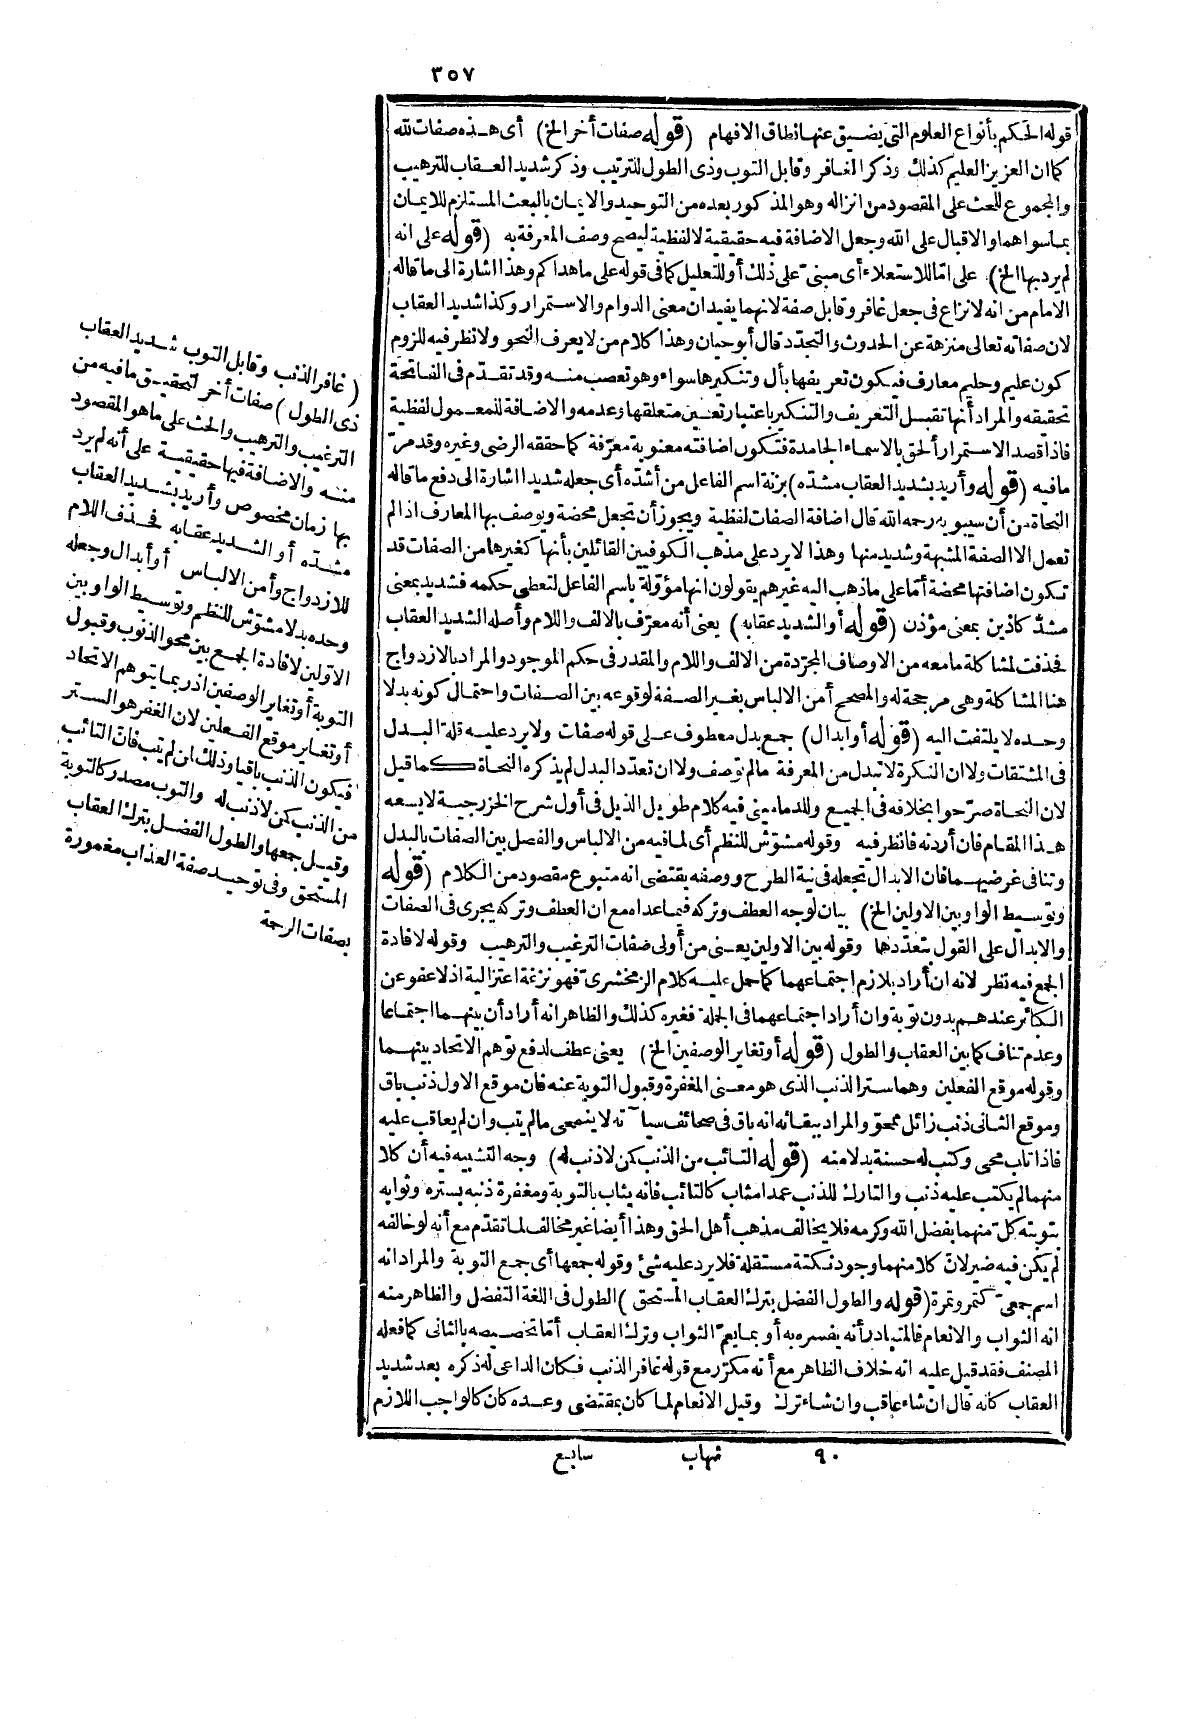 ٣٥٧
قوله الحكم بأنواع العلوم التي يضيق عنها نطاق الافهام (قوله صفات أخر الخ) أى هذه صفات لله
كما ان العزيز العليم كذلك وذكر الغافر وقابل التوب وذى الطول للترتيب وذكر شديد العقاب للترهيب
والمجموع للحث على المقصود من انزاله وهو المذكور بعده من التوحيد والايمان بالبعث المستلزم للايمان
بما سواهما والاقبال على الله وجعل الاضافة فيه حقيقية لا لفظية ليصح وصف المعرفة به (قوله على انه
لم يرد بها الخ) على امّا للاستعلاء أى مبنىّ على ذلك أو للتعليل كما فى قوله على ما هداكم وهذا اشارة الى ما قاله
الامام من انه لا نزاع فى جعل غافر وقابل صفة لانهما يفيدان معنى الدوام والاستمرار وكذا شديد العقاب
لان صفاته تعالى منزهة عن الحدوث والتجدّد قال أبو حيان وهذا كلام من لا يعرف النحو ولا نظر فيه للزوم
كون عليم وحليم معارف فيكون تعريفها بأل وتنكيرها سواء وهو تعصب منه وقد تقدّم فى الفاتحة
تحقيقه والمراد أنها تقبل التعريف والتنكير باعتبار تعين متعلقها وعدمه والاضافة للمعمول لفظية
فاذا قصد الاستمرار ألحق بالاسماء الجامدة فتكون اضافته معنوية معرّفة كما حققه الرضى وغيره وقد مرّ
ما فيه (قوله وأريد بشديد العقاب مشدّه) بزنة اسم الفاعل من أشدّه أى جعله شديدا اشارة الى دفع ما قاله
النحاة من أن سيبويه رحمه الله قال اضافة الصفات لفظية ويجوز أن تجعل محضة ويوصف بها المعارف اذا لم
تعمل الا الصفة المشبهة وشديد منها وهذا لا يرد على مذهب الكوفيين القائلين بأنها كغيرها من الصفات قد
تكون اضافتها محضة أمّا على ما ذهب اليه غيرهم يقولون انها مؤوّلة باسم الفاعل لتعطى حكمه فشديد بمعنى
مشدّ كأذين بمعنى مؤذن (قوله أو الشديد عقابه) يعنى أنه معرّف بالالف واللام وأصله الشديد العقاب
فحذفت لمشاكلة ما معه من الاوصاف المجرّدة من الالف واللام والمقدر فى حكم الموجود والمراد بالازدواج
هنا المشاكلة وهى مرجحة له والمصحح أمن الالباس بغير الصفة لوقوعه بين الصفات واحتمال كونه بدلا
وحده لا يلتفت اليه (قوله أو ابدال) جمع بدل معطوف على قوله صفات ولا يرد عليه قلة البدل
فى المشتقات ولا ان النكرة لا تبدل من المعرفة ما لم توصف ولا ان تعدّد البدل لم يذكره النحاة كما قيل
لان النحاة صرّحوا بخلافه فى الجميع وللدمامينى فيه كلام طويل الذيل فى أول شرح الخزرجية لا يسعه
هذا المقام فان أردته فانظر فيه وقوله مشوّش للنظم أى لما فيه من الالباس والفصل بين الصفات بالبدل
وتنافى غرضيهما فان الابدال تجعله فى نية الطرح ووصفه يقتضى انه متبوع مقصود من الكلام (قوله
وتوسيط الواو بين الاولين الخ) بيان لوجه العطف وتركه فيما عداه مع ان العطف وتركه يجرى فى الصفات
والابدال على القول بتعدّدها وقوله بين الاولين يعنى من أولى صفات الترغيب والترهيب وقوله لافادة
الجمع فيه نظر لانه ان أراد بلازم اجتماعهما كما حمل عليه كلام الزمخشرىّ فهو نزغة اعتزالية اذ لا عفو عن
الكبائر عندهم بدون توبة وان أراد اجتماعهما فى الجملة فغيره كذلك والظاهر انه أراد أن بينهما اجتماعا
وعدم تناف كما بين العقاب والطول (قوله أو تغاير الوصفين الخ) يعنى عطف لدفع توهم الاتحاد بينهما
وقوله موقع الفعلين وهما ستر الذنب الذى هو معنى المغفرة وقبول التوبة عنه فان موقع الاول ذنب باق
وموقع الثانى ذنب زائل ممحوّ والمراد ببقائه انه باق فى صحائف سيآته لا ينمحى ما لم يتب وان لم يعاقب عليه
فاذا تاب محى وكتب له حسنة بدلا منه (قوله التائب من الذنب كمن لا ذنب له) وجه التشبيه فيه أن كلا
منهما لم يكتب عليه ذنب والتارك للذنب عمدا مثاب كالتائب فانه يثاب بالتوبة ومغفرة ذنبه بستره وثوابه
بتوبته كلّ منهما بفضل الله وكرمه فلا يخالف مذهب أهل الحق وهذا أيضا غير مخالف لما تقدّم مع أنه لو خالفه
لم يكن فيه ضير لانّ كلا منهما وجود نكتة مستقلة فلا يرد عليه شئ وقوله جمعها أى جمع التوبة والمراد انه
اسم جمعىّ كتمر وتمرة (قوله والطول الفضل بترك العقاب المستحق) الطول فى اللغة التفضل والظاهر منه
انه الثواب والانعام فالمتبادر أنه يفسره به أو بما يعمّ الثواب وترك العقاب أمّا تخصيصه بالثانى كما فعله
المصنف فقد قيل عليه انه خلاف الظاهر مع أنه مكرّر مع قوله غافر الذنب فكان الداعى له ذكره بعد شديد
العقاب كأنه قال ان شاء عاقب وان شاء ترك وقيل الانعام لما كان بمقتضى وعده كان كالواجب اللازم
٩٠ شهاب سابع
(غافر الذنب وقابل التوب شديد العقاب
ذى الطول) صفات أخر لتحقيق ما فيه من
الترغيب والترهيب والحث على ما هو المقصود
منه والاضافة فيها حقيقية على أنه لم يرد
بها زمان مخصوص وأريد بشديد العقاب
مشدّه أو الشديد عقابه فحذف اللام
للازدواج وأمن الالباس أو أبدال وجعله
وحده بدلا مشوّش للنظم وتوسيط الواو بين
الاولين لافادة الجمع بين محو الذنوب وقبول
التوبة أو تغاير الوصفين اذ ربما يتوهم الاتحاد
أو تغاير موقع الفعلين لان الغفر هو الستر
فيكون الذنب باقيا وذلك لمن لم يتب فانّ التائب
من الذنب كمن لا ذنب له والتوب مصدر كالتوبة
وقيل جمعها والطول الفضل بترك العقاب
المستحق وفى توحيد صفة العذاب مغمورة
بصفات الرحمة